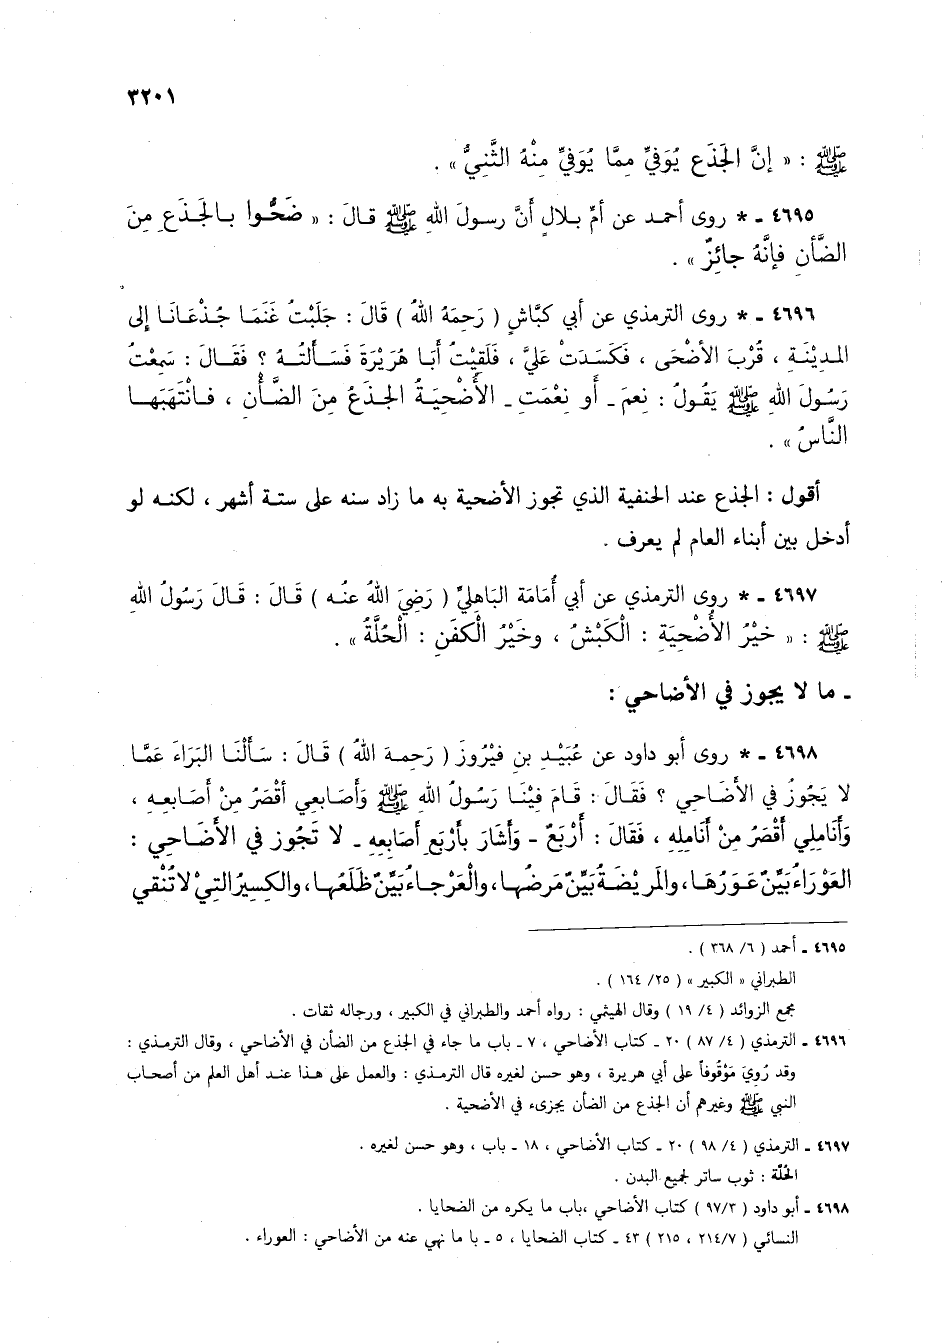 ٣٢٠١
ﷺ : « إنَّ الجَذَع يُوَفيِّ مِمَّا يُوَفيِّ مِنْهُ الثَّنِيُّ » .
٤٦٩٥ - * روى أحمد عن أمِّ بلالٍ أَنَّ رسولَ اللهِ ﷺ قالَ : « ضَحُّوا بالجَذَعِ مِنَ
الضَّأنِ فإنَّهُ جائِزٌ » .
٤٦٩٦ - * روى الترمذي عن أبي كبَّاشٍ ( رَحِمَهُ اللهُ ) قَالَ : جَلَبْتُ غَنَمَا جُذْعَانَا إلى
المدِيْنَةِ ، قُرْبَ الأضْحَى ، فَكَسَدَتْ عَليَّ ، فَلَقِيْتُ أَبَا هُرَيْرَةَ فَسَأَلْتُهُ ؟ فَقَالَ : سَمِعْتُ
رَسُولَ اللهِ ﷺ يَقُولُ : نِعمَ - أَو نِعْمَتِ - الأُضْحِيَةُ الجَذَعُ مِنَ الضَّأْنِ ، فَانْتَهَبَهَا
النَّاسُ » .
أقول : الجذع عند الحنفية الذي تجوز الأضحية به ما زاد سنه على ستة أشهر ، لكنه لو
أدخل بين أبناء العام لم يعرف .
٤٦٩٧ - * روى الترمذي عن أبي أُمَامَة البَاهِليِّ ( رَضِيَ اللهُ عنُه ) قَالَ : قَالَ رَسُولُ اللهِ
ﷺ : « خيْرُ الأُضْحِيَةِ : الْكَبْشُ ، وخَيْرُ الْكفَنِ : الْحُلَّةُ » .
- ما لا يجوز في الأضاحي :
٤٦٩٨ - * روى أبو داود عن عُبَيْدِ بنِ فيْرُوزَ ( رَحِمهَ اللهُ ) قَالَ : سَأَلْنَا البَرَاءَ عَمَّا
لا يَجُوزُ في الأَضَاحِي ؟ فَقَالَ : قَامَ فِيْنَا رَسُولُ اللهِ ﷺ وَأَصَابعِي أَقْصَرُ مِنْ أَصَابعِه ،
وَأَنَامِلي أَقْصَرُ مِنْ أَنَامِلِهِ ، فَقَالَ : أَرْبَعٌ - وَأَشَارَ بأَرْبَعِ أَصابِعِهِ - لا تَجُوز في الأَضَاحِي :
العَوْرَاءُ بَيِّنٌ عَوَرُهَا، والمرِيْضَةُ بَيِّنٌ مَرَضُها، والْعَرْجاءُ بَيِّنٌ ظَلَعُها، والكسِيرُ التِيْ لا تُنْقي
٤٦٩٥ - أحمد ( ٦/ ٣٦٨ ) .
الطبراني « الكبير » ( ٢٥/ ١٦٤ ) .
مجمع الزوائد ( ٤/ ١٩ ) وقال الهيثمي : رواه أحمد والطبراني في الكبير ، ورجاله ثقات .
٤٦٩٦ - الترمذي ( ٤/ ٨٧ ) ٢٠ - كتاب الأضاحي ، ٧ - باب ما جاء في الجذع من الضأن في الأضاحي ، وقال الترمذي :
وقد رُويَ مَوْقُوفاً على أبي هريرة ، وهو حسن لغيره قال الترمذي : والعمل على هذا عند أهل العلم من أصحاب
النبي ﷺ وغيرهم أن الجذع من الضأن يجزىء في الأضحية .
٤٦٩٧ - الترمذي ( ٤/ ٩٨ ) ٢٠ - كتاب الأضاحي ، ١٨ - باب ، وهو حسن لغيره .
الحُلَّة : ثوب ساتر لجميع البدن .
٤٦٩٨ - أبو داود ( ٩٧/٣ ) كتاب الأضاحي ،باب ما يكره من الضحايا .
النسائي ( ٢١٤/٧ ، ٢١٥ ) ٤٣ - كتاب الضحايا ، ٥ - با ما نهي عنه من الأضاحي : العوراء .